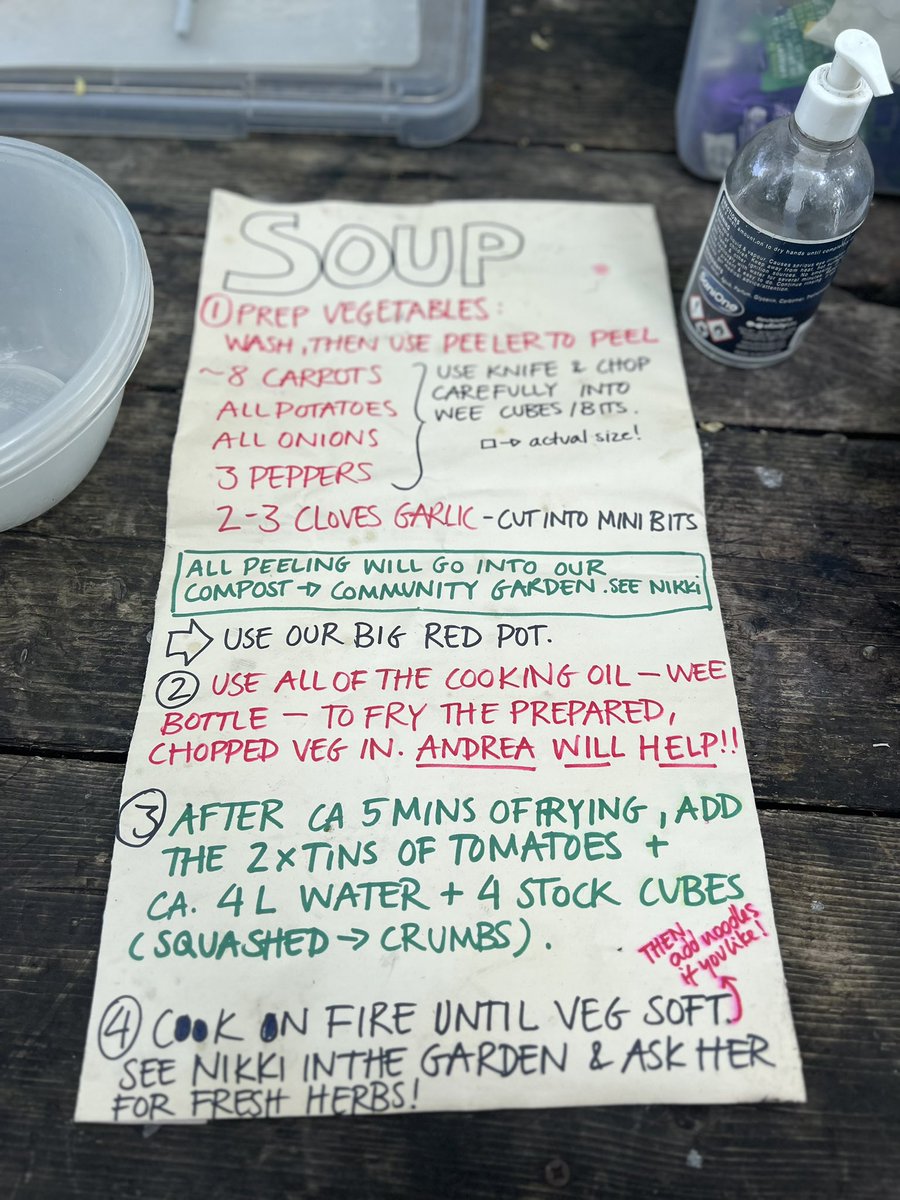 SOUP
① PREP VEGETABLES:
WASH, THEN USE PEELER TO PEEL
~8 CARROTS
ALL POTATOES
ALL ONIONS
3 PEPPERS
USE KNIFE & CHOP
CAREFULLY INTO
WEE CUBES / BITS.
□→ actual size!
2-3 CLOVES GARLIC - CUT INTO MINI BITS
ALL PEELING WILL GO INTO OUR
COMPOST → COMMUNITY GARDEN. SEE NIKKI
⇨ USE OUR BIG RED POT.
② USE ALL OF THE COOKING OIL — WEE
BOTTLE — TO FRY THE PREPARED,
CHOPPED VEG IN. ANDREA WILL HELP!!
③ AFTER CA 5 MINS OF FRYING, ADD
THE 2 x TINS OF TOMATOES +
CA. 4 L WATER + 4 STOCK CUBES
(SQUASHED → CRUMBS).
THEN
add noodles
if you like!
④ COOK ON FIRE UNTIL VEG SOFT.
SEE NIKKI IN THE GARDEN & ASK HER
FOR FRESH HERBS!
SaniOne